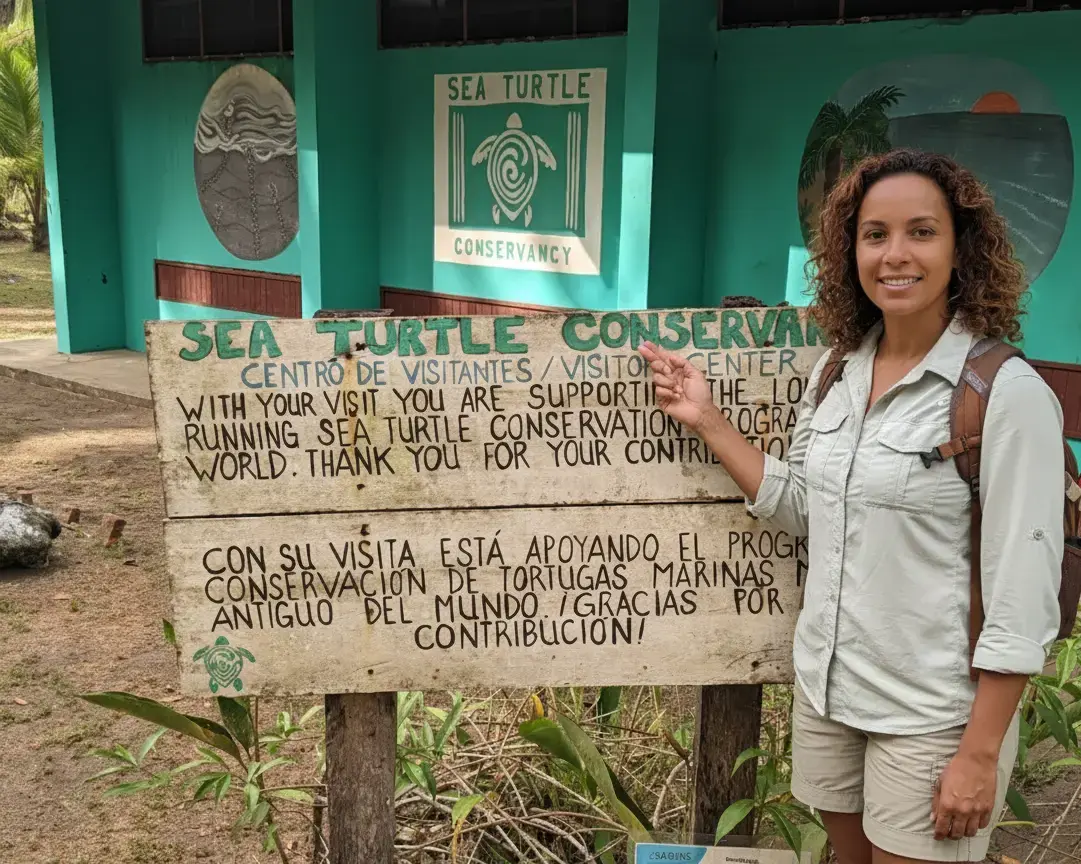 SEA TURTLE
CONSERVANCY
SEA TURTLE CONSERVAN
CENTRO DE VISITANTES / VISITOR CENTER
WITH YOUR VISIT YOU ARE SUPPORTIN THE LO
RUNNING SEA TURTLE CONSERVATION ROGRA
WORLD. THANK YOU FOR YOUR CONTRIB TIO
CON SU VISITA ESTÁ APOYANDO EL PROG
CONSERVACIÓN DE TORTUGAS MARINAS
ANTIGUO DEL MUNDO. ¡GRACIAS POR
CONTRIBUCIÓN!